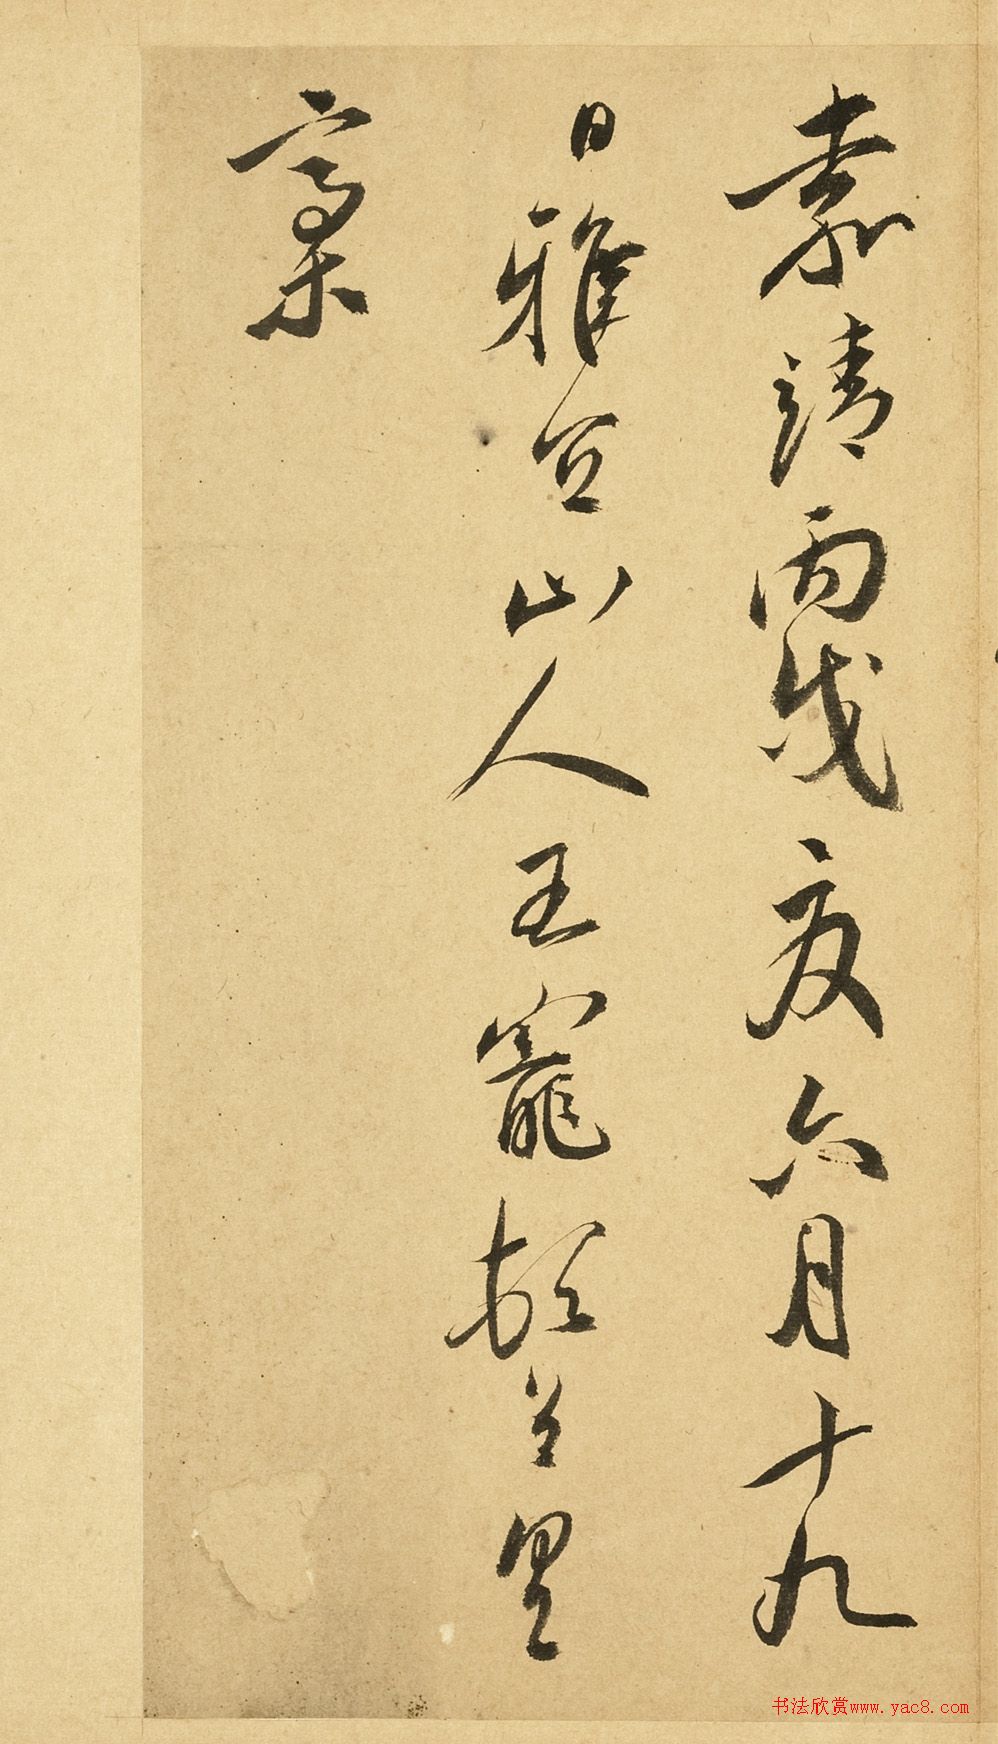 嘉靖丙戌夏六月十九
日雅宜山人王寵頓首具
稾
书法欣赏www.yac8.com